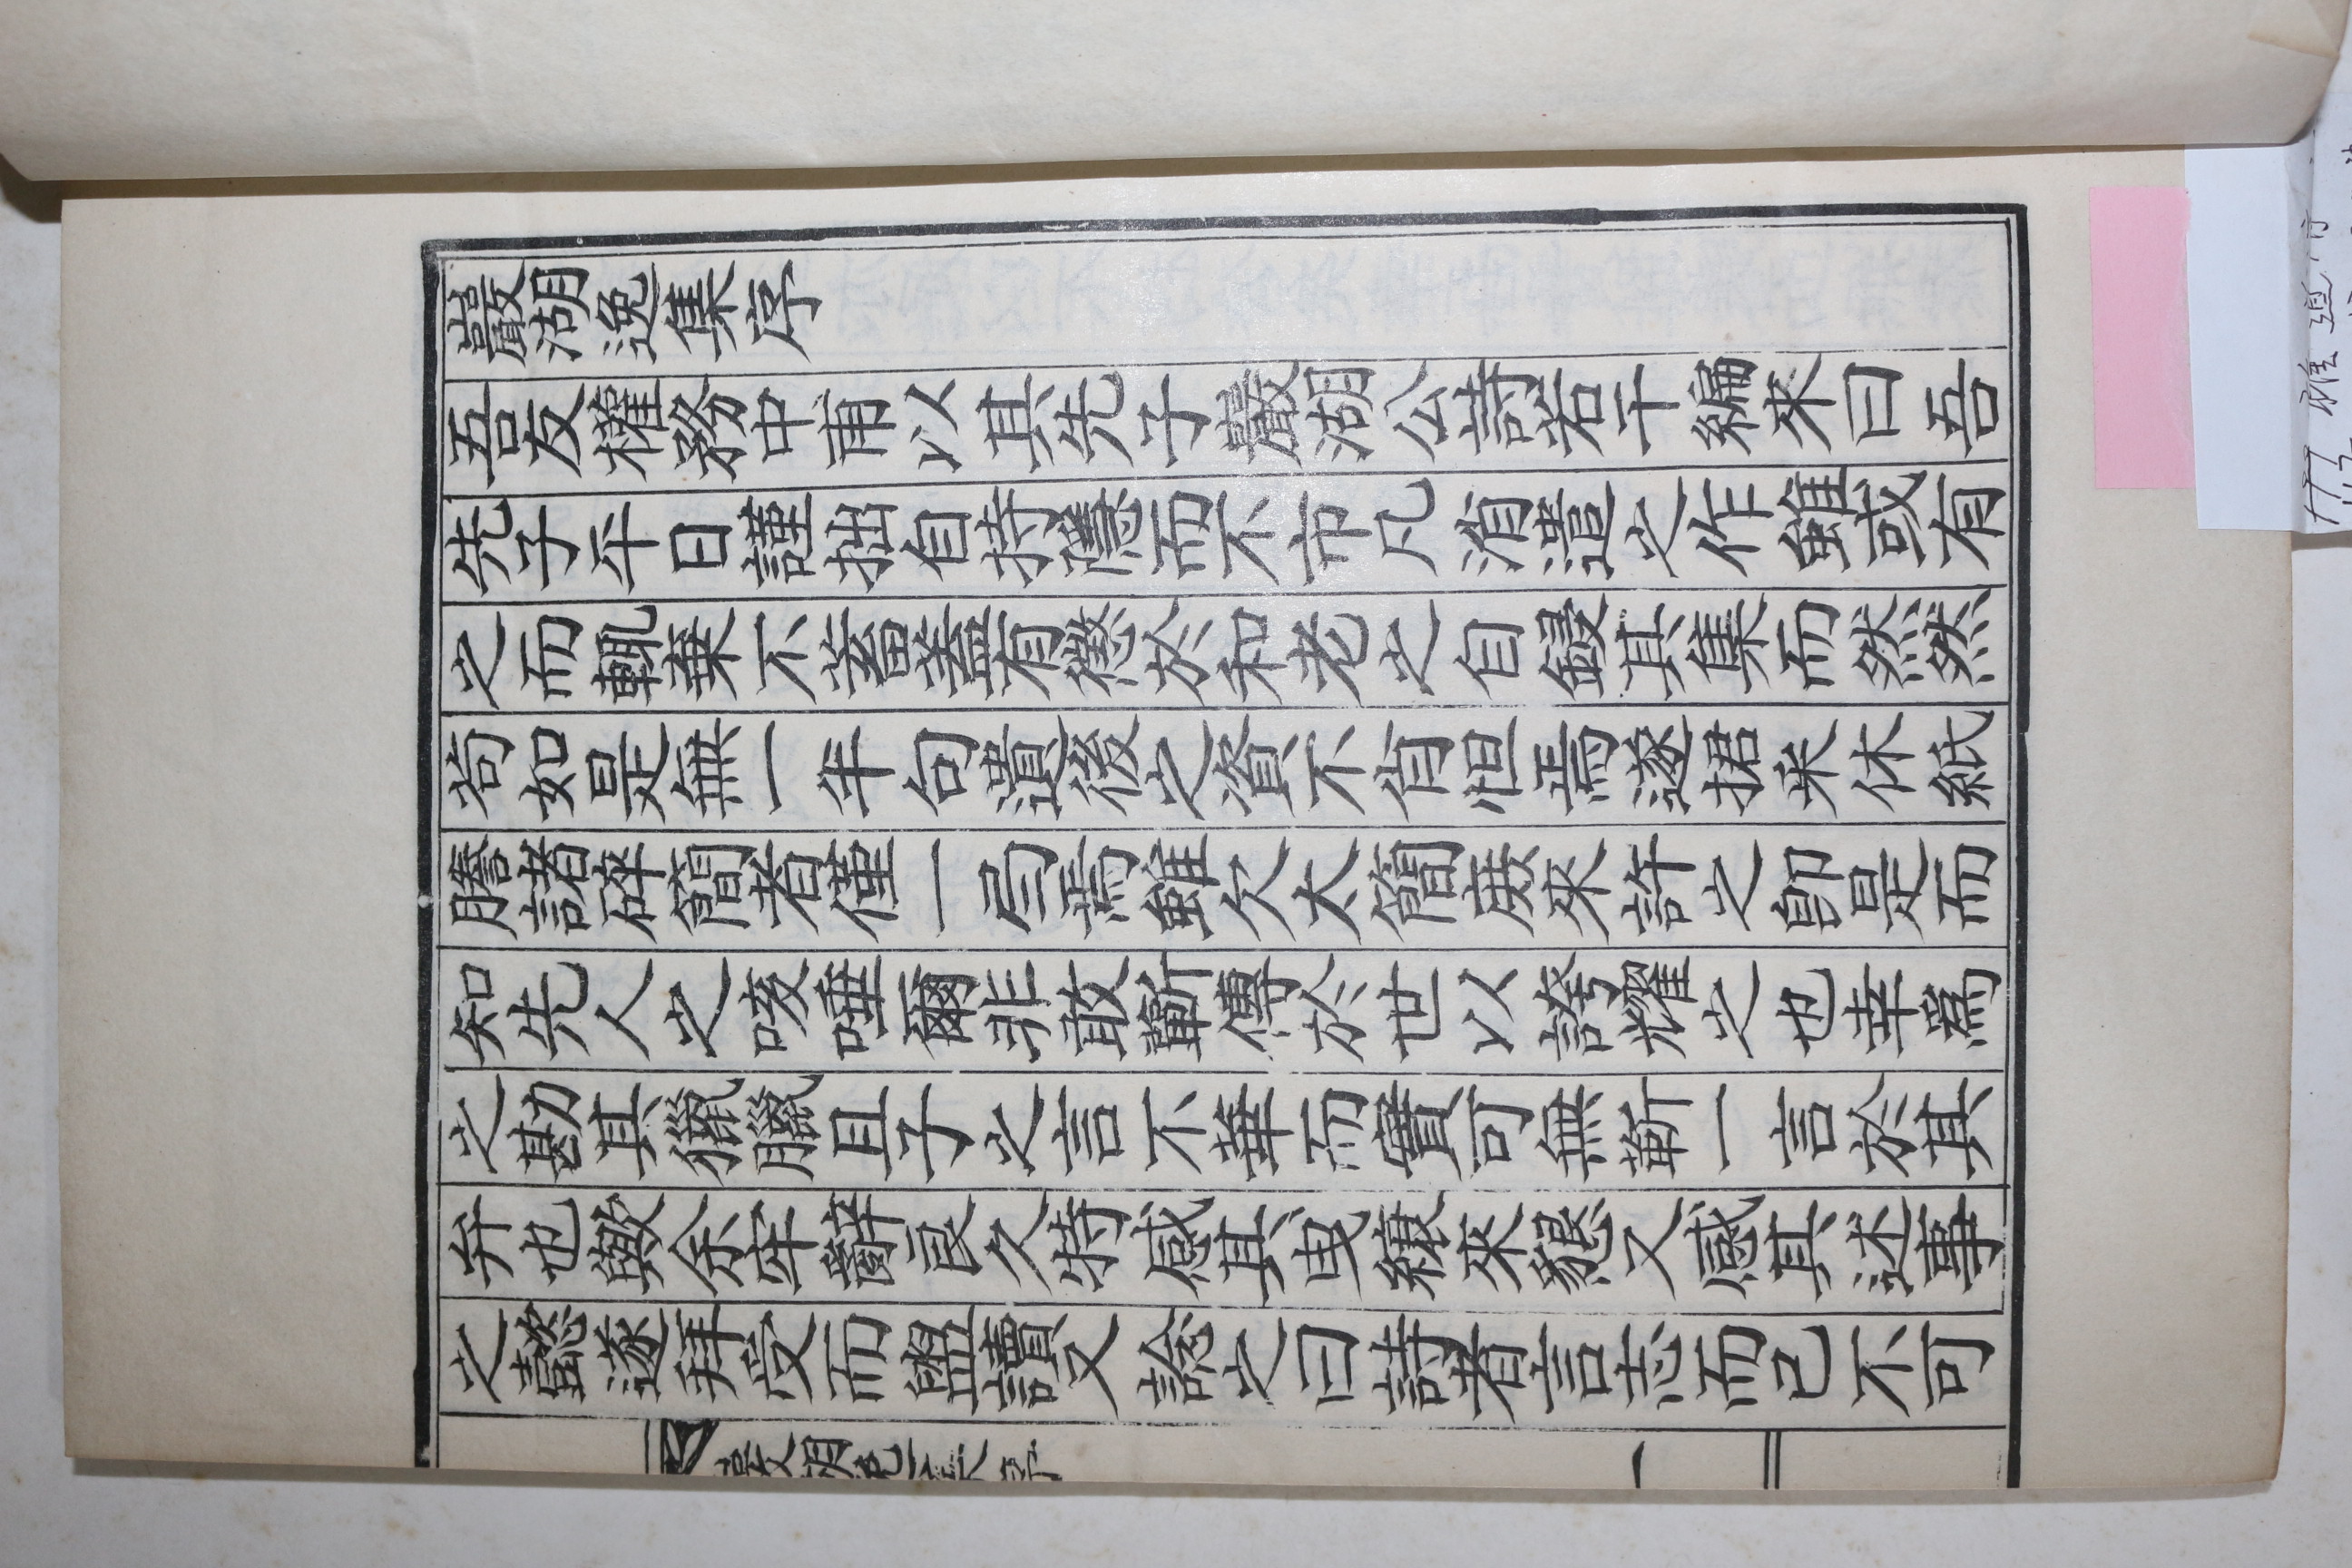 巖湖逸集序
吾友權務中甫以其先子巖湖公詩若干編來曰吾
先子平日謹拙自持隱而不市凡消遣之作雖或有
之而輒棄不蓄蓋有懲於和老之自鋟其集而然然
苟如是無一半句遺後之資不肖怛焉遂捃采休紙
謄諸碎簡者僅一弓焉雖欠太簡庶來許之卽是而
知先人之咳唾爾非敢蘄傳於世以誇耀之也幸爲
之勘其獵臘且子之言不華而實可無蘄一言於其
弁也歟余牢辭良久特感其曳纕來懇又感其述事
之懿遂拜受而盥讀又諗之曰詩者言志而已不可
巖湖逸集序
一